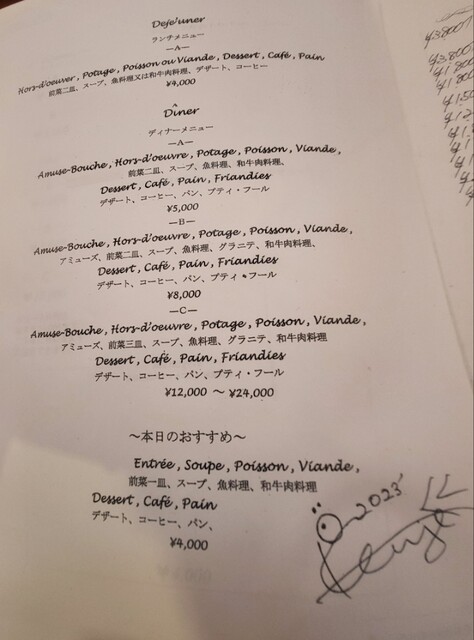 Deje'uner
ランチメニュー
—A—
Hors-d'oeuver , Potage , Poisson ou Viande , Dessert , Café , Pain
前菜二皿、スープ、魚料理又は和牛肉料理、デザート、コーヒー
¥4,000
Dîner
ディナーメニュー
—A—
Amuse-Bouche , Hors-d'oeuvre , Potage , Poisson , Viande ,
前菜二皿、スープ、魚料理、和牛肉料理、
Dessert , Café , Pain , Friandies
デザート、コーヒー、パン、プティ・フール
¥5,000
—B—
Amuse-Bouche , Hors-d'oeuvre , Potage , Poisson , Viande ,
アミューズ、前菜二皿、スープ、魚料理、グラニテ、和牛肉料理、
Dessert , Café , Pain , Friandies
デザート、コーヒー、パン、プティ・フール
¥8,000
—C—
Amuse-Bouche , Hors-d'oeuvre , Potage , Poisson , Viande ,
アミューズ、前菜三皿、スープ、魚料理、グラニテ、和牛肉料理
Dessert , Café , Pain , Friandies
デザート、コーヒー、パン、プティ・フール
¥12,000 ～ ¥24,000
～本日のおすすめ～
Entrée , Soupe , Poisson , Viande ,
前菜一皿、スープ、魚料理、和牛肉料理
Dessert , Café , Pain
デザート、コーヒー、パン、
¥4,000
2023'